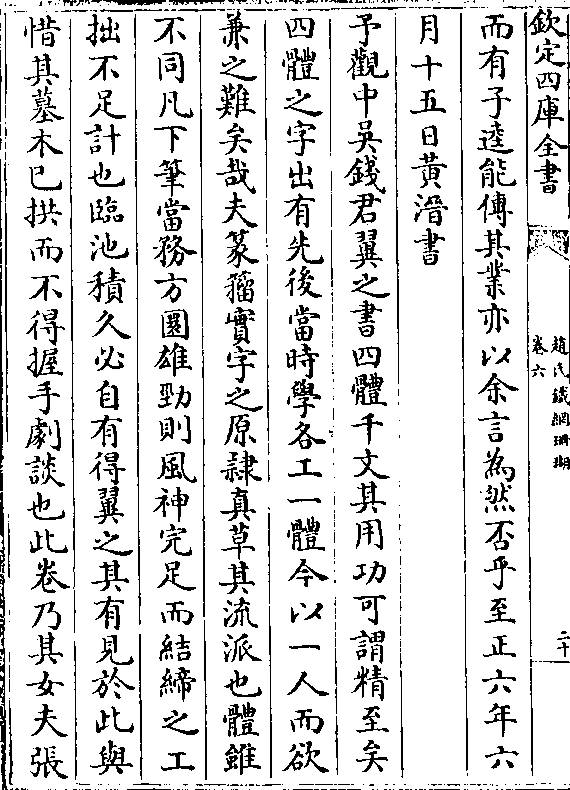 欽定四庫全書
趙氏鐵網珊瑚
卷六
二十
而有子逵能傳其業亦以余言為然否乎至正六年六
月十五日黃溍書
予觀中吳錢君翼之書四體千文其用功可謂精至矣
四體之字出有先後當時學各工一體今以一人而欲
兼之難矣哉夫篆籀實字之原隷真草其流派也體雖
不同凡下筆當務方圓雄勁則風神完足而結締之工
拙不足計也臨池積久必自有得翼之其有見於此與
惜其墓木已拱而不得握手劇談也此卷乃其女夫張